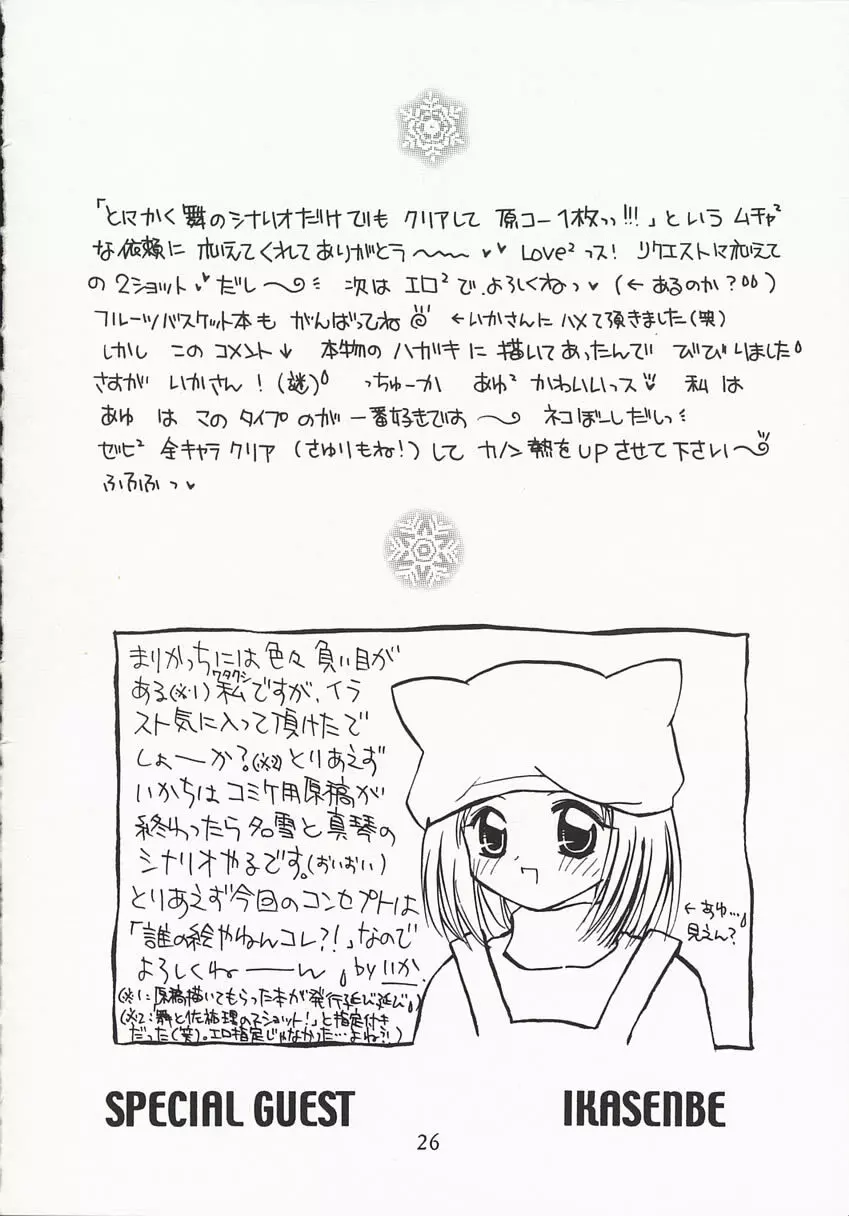 「とにかく舞のシナリオだけでも クリアして 原コー1枚っっ!!!」という ムチャ²
な依頼に 応えてくれてありがとう〜〜〜♥♥ Love²っス! リクエストに応えて
の2ショット♥だし〜 次は エロ²で、よろしくねっ♥(←あるのか?)
フルーツバスケット本も がんばってね ←いかさんにハメて頂きました(笑)
しかし このコメント↓ 本物のハガキに描いてあったんで びびりました
さすが いかさん!(謎) っちゅーか あゆ² かわいいっス♥ 私は
あゆ は このタイプのが一番好きです〜 ネコぼーしだしっ
ゼヒ² 全キャラクリア (さゆりもね!)して カノン熱をUPさせて下さい〜
ふふふっ♥
まりかっちには色々負い目が
ある(※1)私ワタクシですが、イラ
スト気に入って頂けたで
しょーか?(※2)とりあえず
いかちはコミケ用原稿が
終わったら名雪と真琴の
シナリオやるです。(おいおい)
とりあえず今回のコンセプトは
「誰の絵やねんコレ?!」なので
よろしくねーーん by いか
←あゆ…
見えん?
(※1:原稿描いてもらった本が発行延び延び)
(※2:舞と佐祐理の2ショット!」と指定付き
だった(笑)。エロ指定じゃなかった…よね?!)
SPECIAL GUEST IKASENBE
26